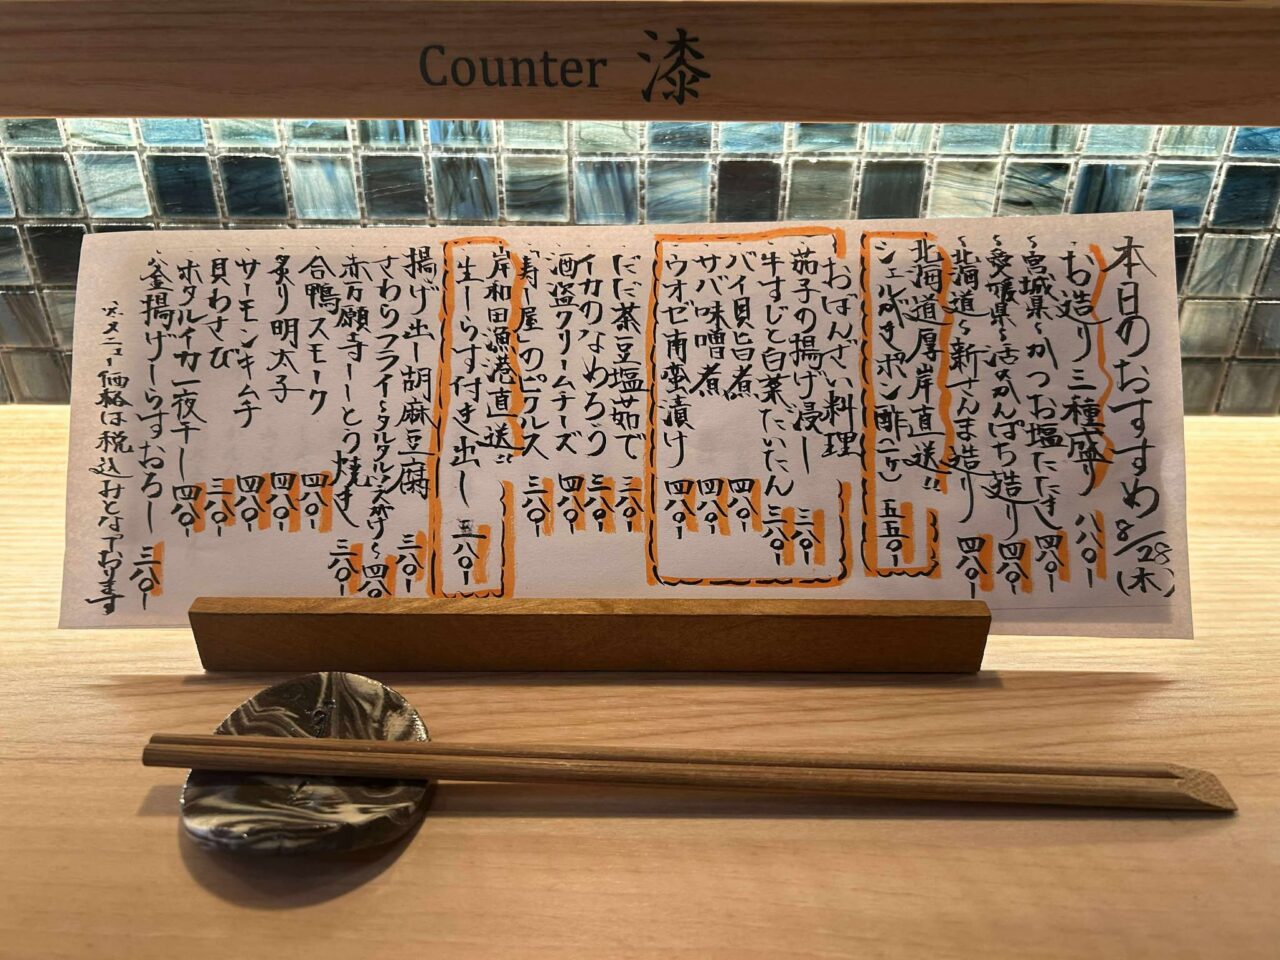 Counter 漆
本日のおすすめ 8/28(木)
お造り三種盛り 八八〇-
〜宮城県〜かつお塩たたき 四八〇-
〜愛媛県〜活〆かんぱち造り 四八〇-
〜北海道〜新さんま造り 四八〇-
北海道厚岸直送!!
シェルがきポン酢(一ヶ) 五五〇-
おばんざい料理
茄子の揚げ浸し 三八〇-
牛すじと白菜だいたん 三八〇-
バイ貝旨煮 四八〇-
サバ味噌煮 四八〇-
ウオゼ南蛮漬け 四八〇-
だだ茶豆塩茹で 三八〇-
イカのなめろう 三八〇-
酒盗クリームチーズ 四八〇-
「寿し屋」のピクルス 三八〇-
岸和田漁港直送!!
生しらす付き出し 五八〇-
揚げ出し胡麻豆腐 三八〇-
さわらフライ〜タルタルソースがけ〜 四八〇-
赤万願寺しとう焼き 三八〇-
合鴨スモーク 四八〇-
炙り明太子 四八〇-
サーモンキムチ 四八〇-
貝わさび 三八〇-
ホタルイカ一夜干し 四八〇-
釜揚げしらすおろし 三八〇-
※メニュー価格は税込みとなっております